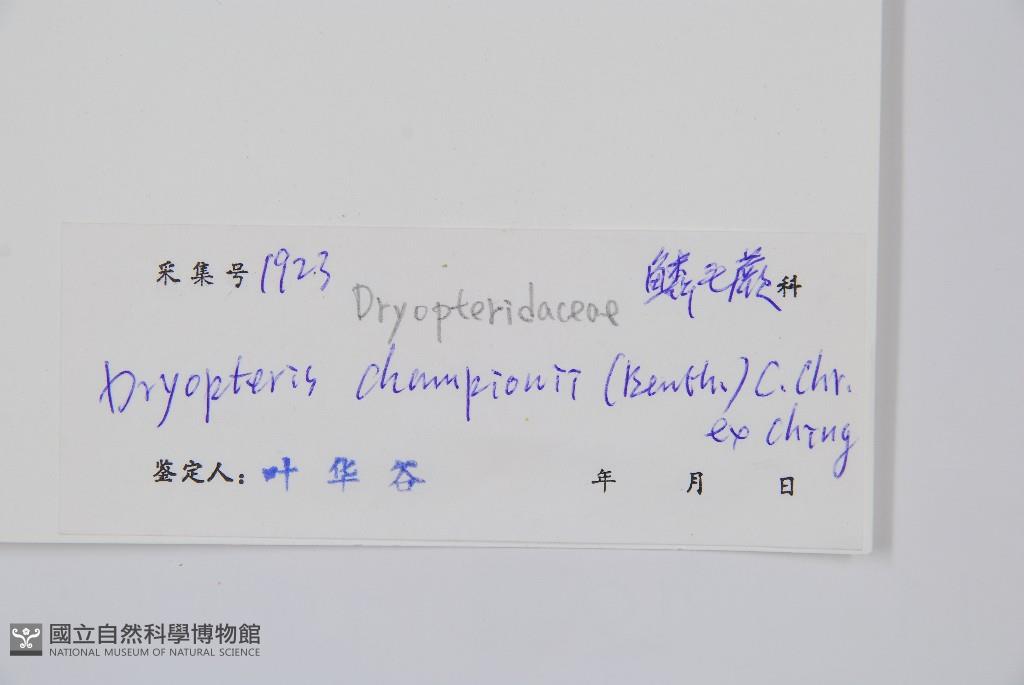 采集号 1923 鳞毛蕨科
Dryopteridaceae
Dryopteris championii (Benth.) C. Chr.
ex Ching
鉴定人：叶华谷 年 月 日
國立自然科學博物館
NATIONAL MUSEUM OF NATURAL SCIENCE